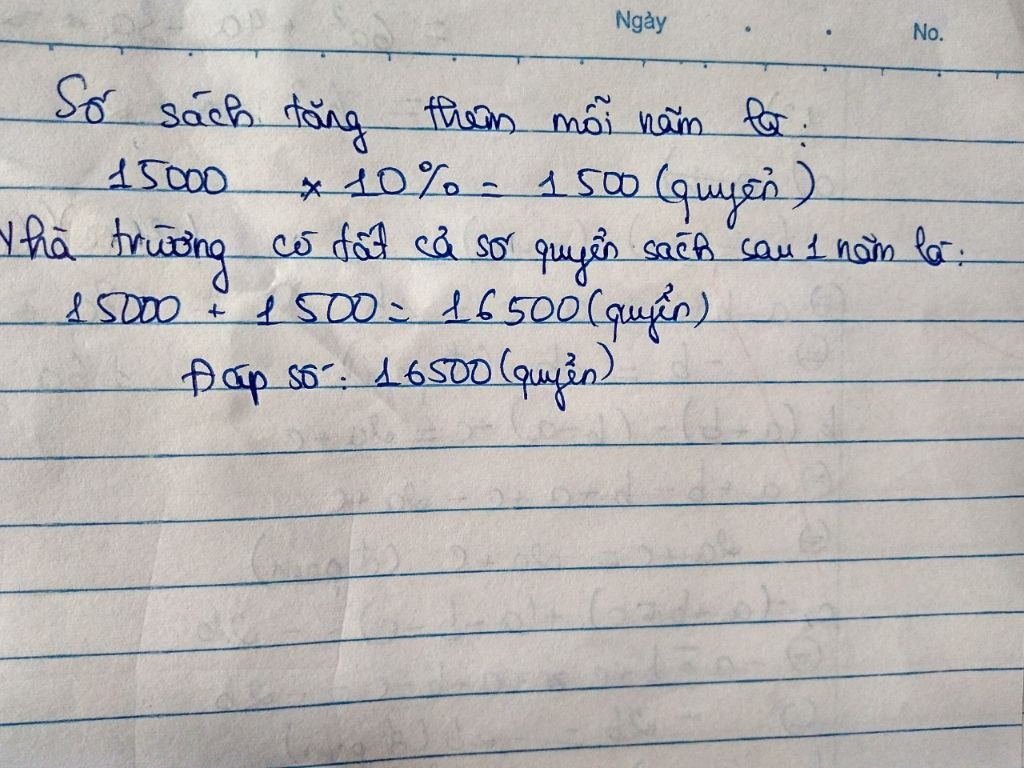 Ngày . . No.
Số sách tăng thêm mỗi năm là:
15000 × 10% = 1500 (quyển)
Nhà trường có tất cả số quyển sách sau 1 năm là:
15000 + 1500 = 16500 (quyển)
Đáp số: 16500 (quyển)